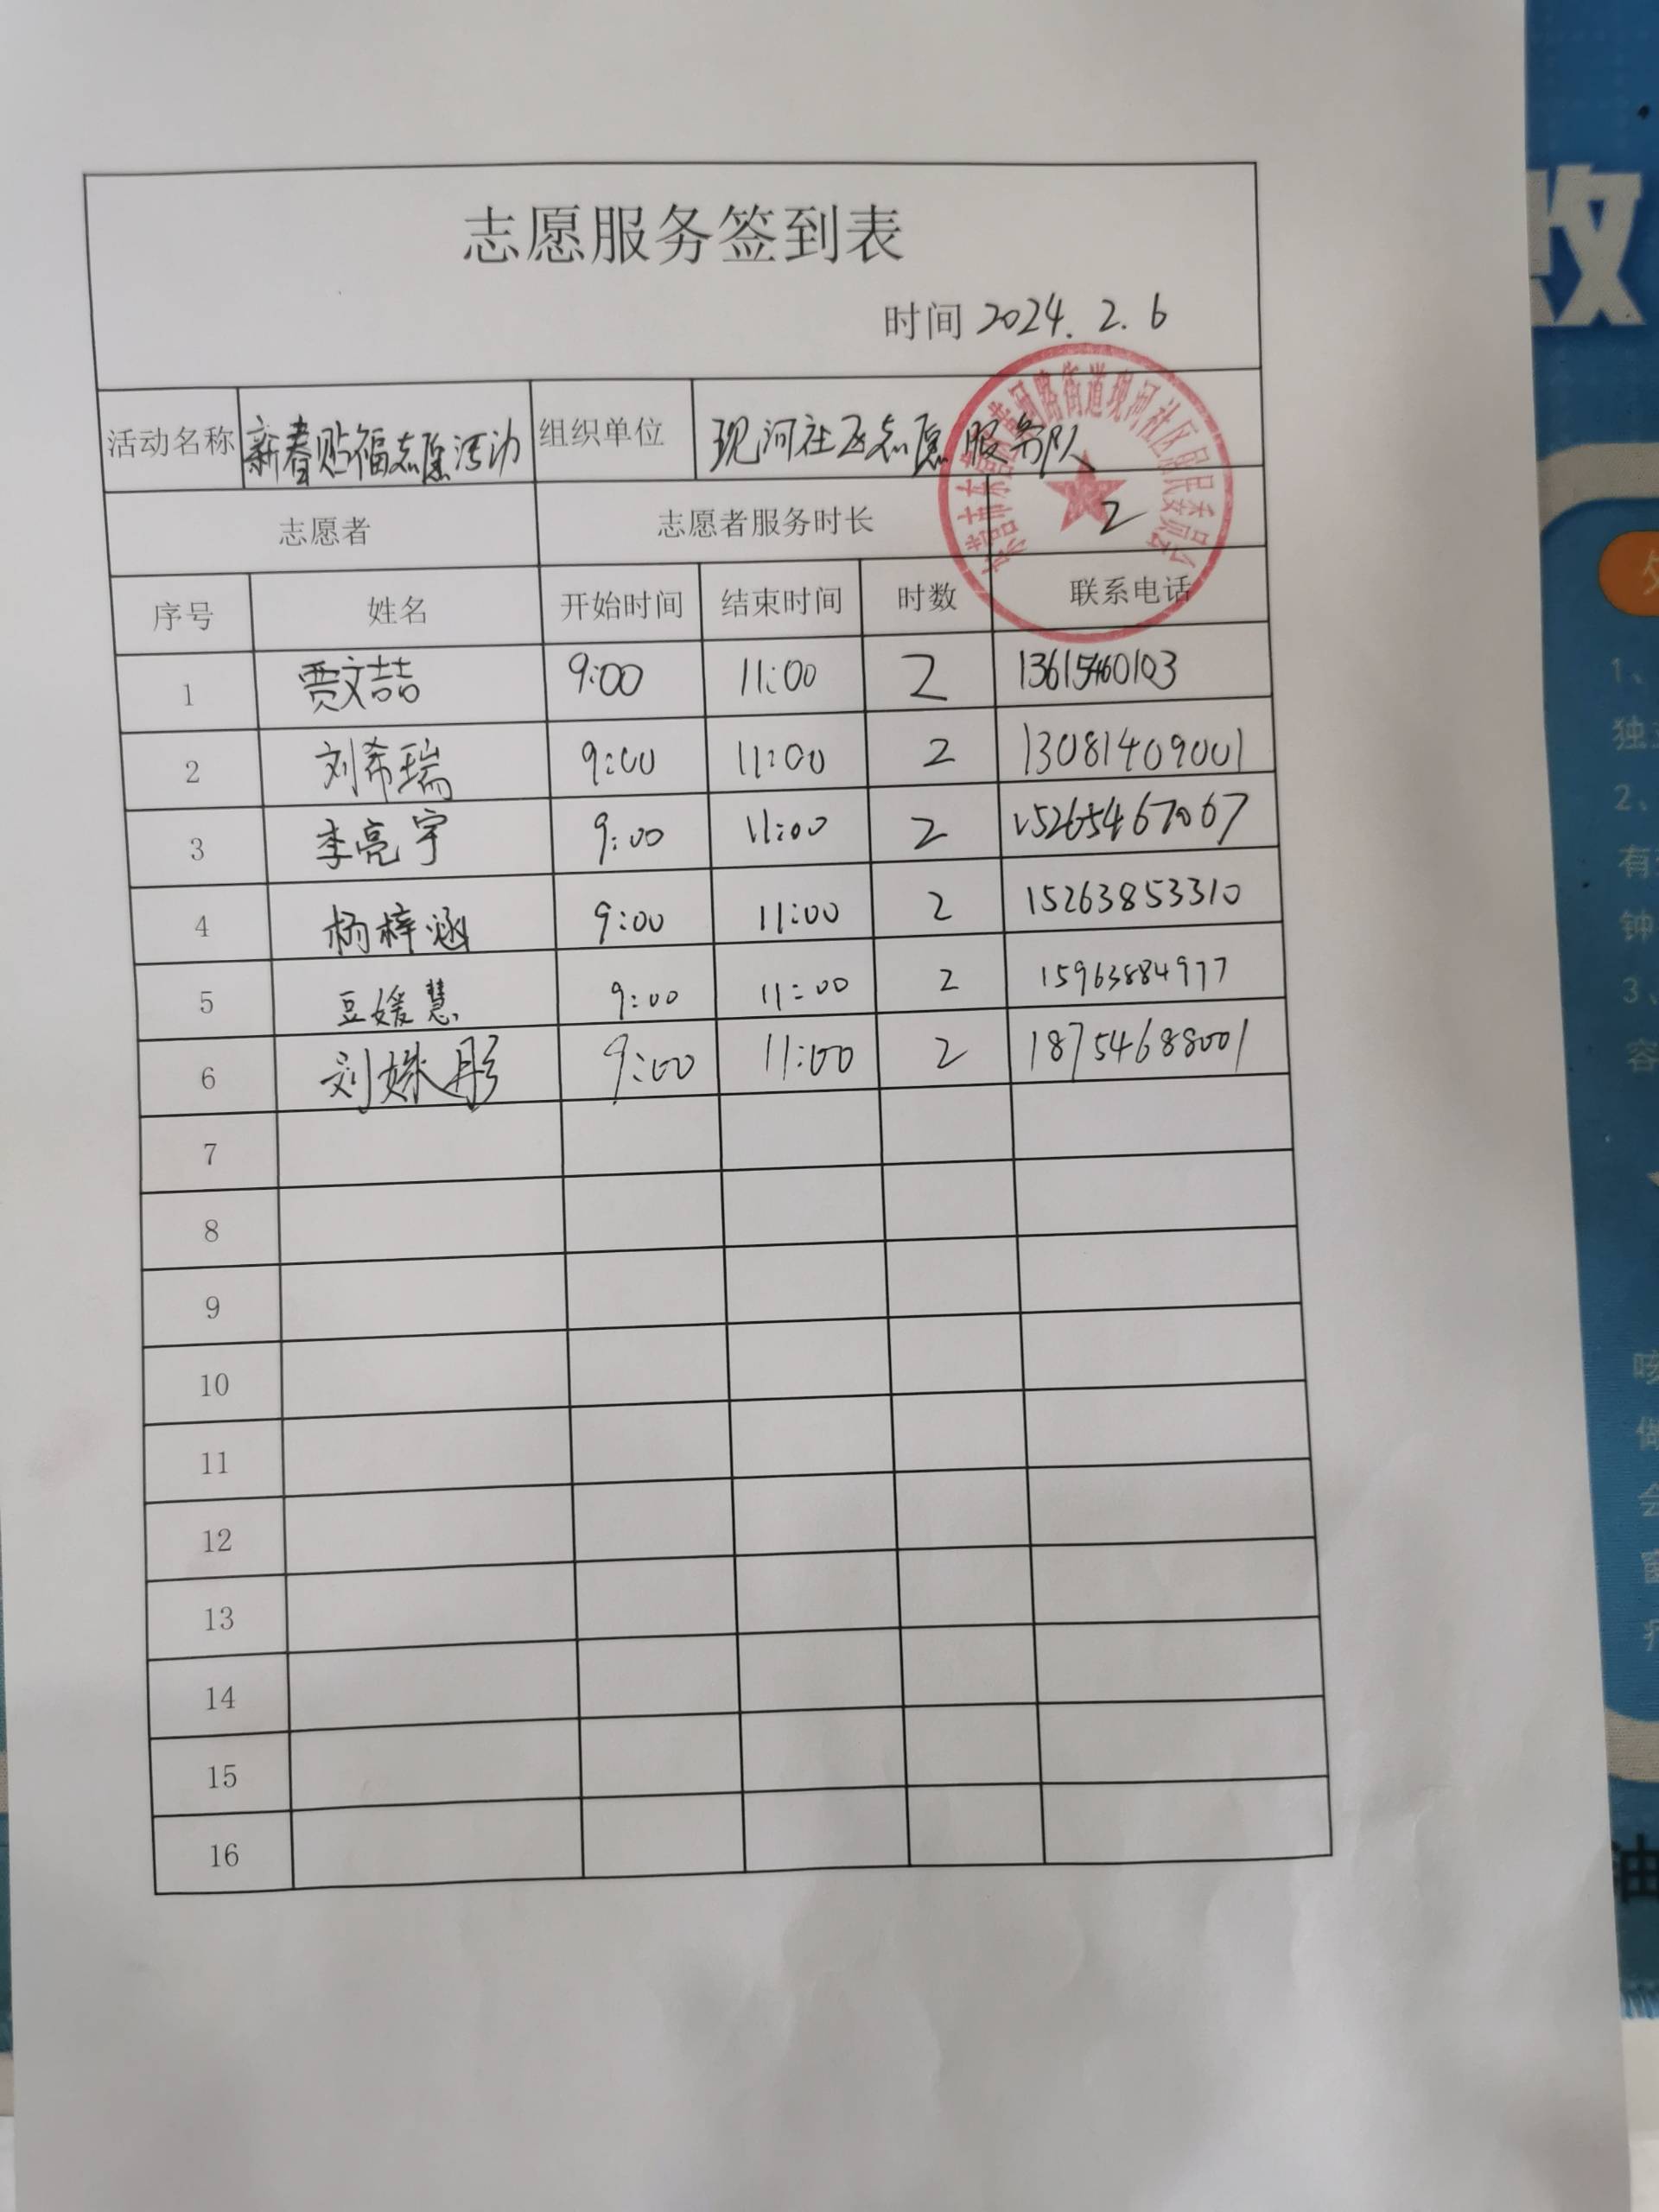 志愿服务签到表
时间 2024.2.6
活动名称 新春贴福志愿活动 组织单位 现河社区志愿服务队
志愿者 志愿者服务时长 2
序号 姓名 开始时间 结束时间 时数 联系电话
1 贾文喆 9:00 11:00 2
2 刘希瑞 9:00 11:00 2 13081409001
3 李亮宇 9:00 11:00 2 15265467067
4 杨梓涵 9:00 11:00 2 15263853310
5 豆媛慧 9:00 11:00 2 15963884977
6 刘姝彤 9:00 11:00 2 18754688001
7
8
9
10
11
12
13
14
15
16
1、
2、
有
钟
3、
容
油